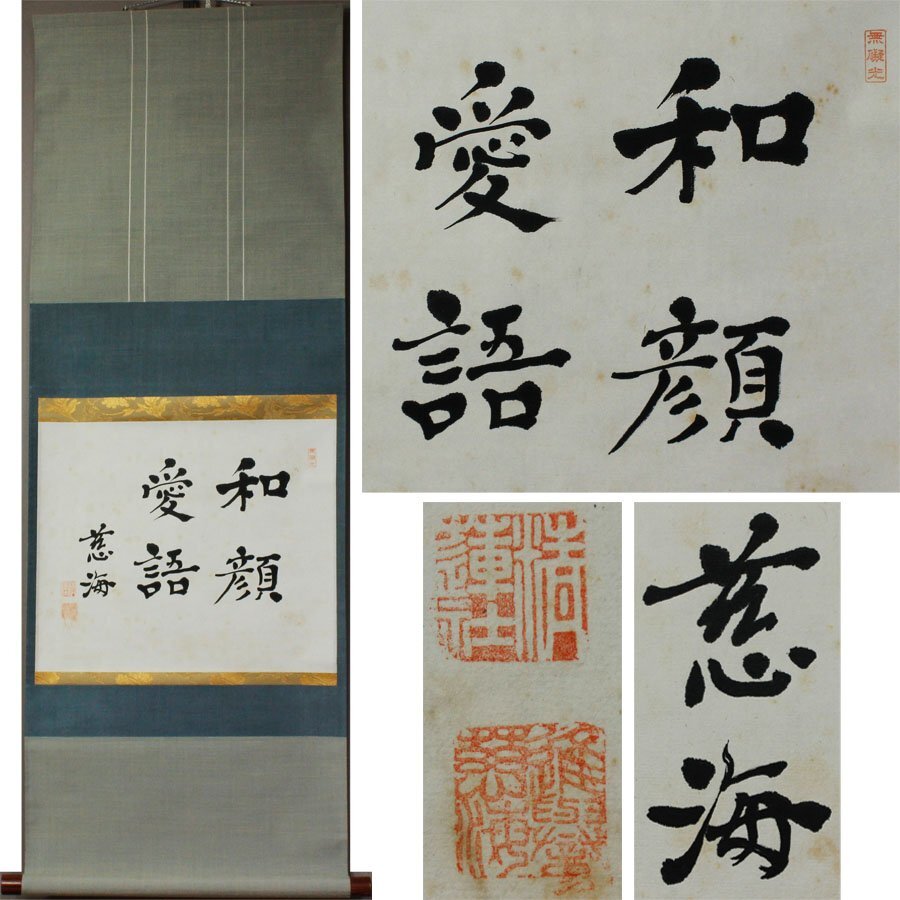 和顔
愛語
慈海
無礙光
和顔
愛語
慈海